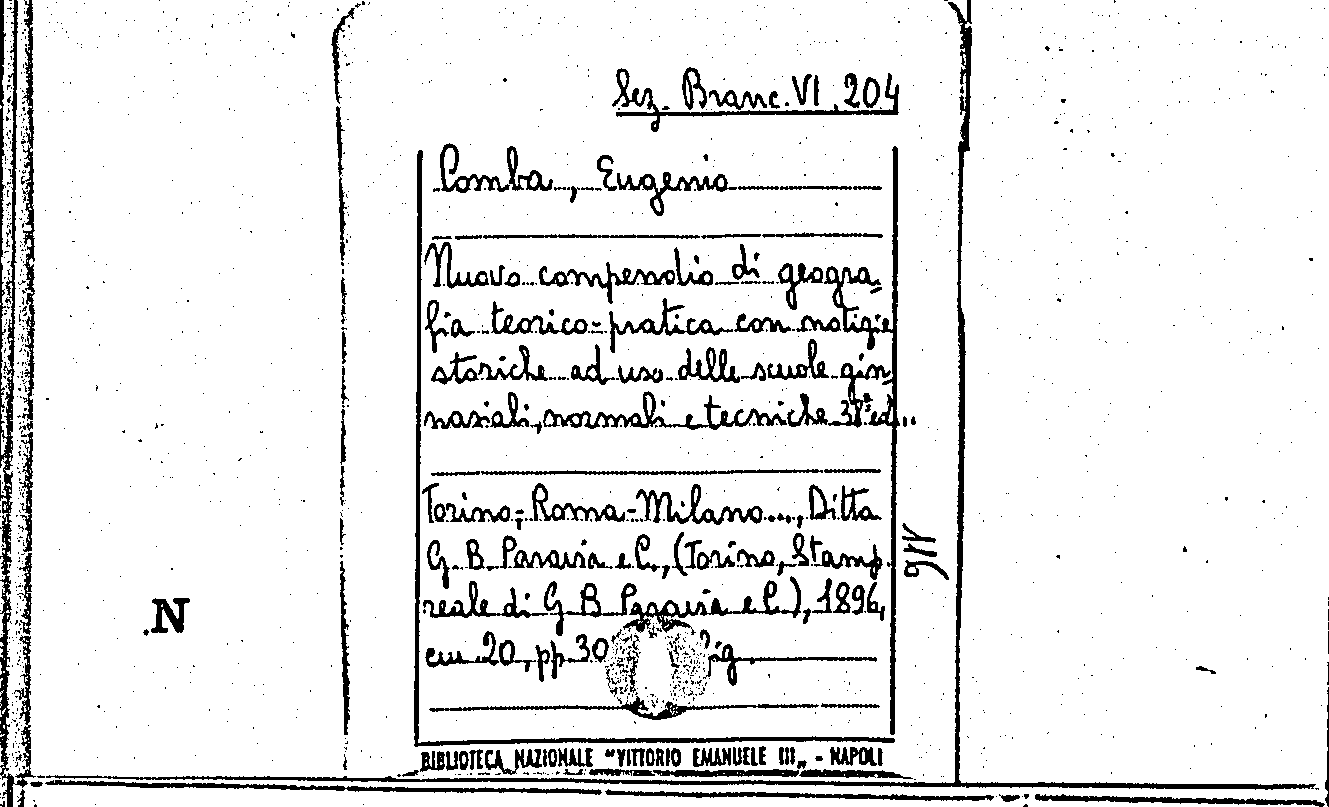 Sez. Branc. VI. 204
Comba, Eugenio
Nuovo compendio di geogra=
fia teorico-pratica con notizie
storiche ad uso delle scuole gin=
nasiali, normali e tecniche ed...
Torino-Roma-Milano..., Ditta
G. B. Paravia e C., (Torino, Stamp.
reale di G B Paravia e C.), 1896,
cm 20, pp. 30 fig.
N
BIBLIOTECA NAZIONALE "VITTORIO EMANUELE III„ - NAPOLI